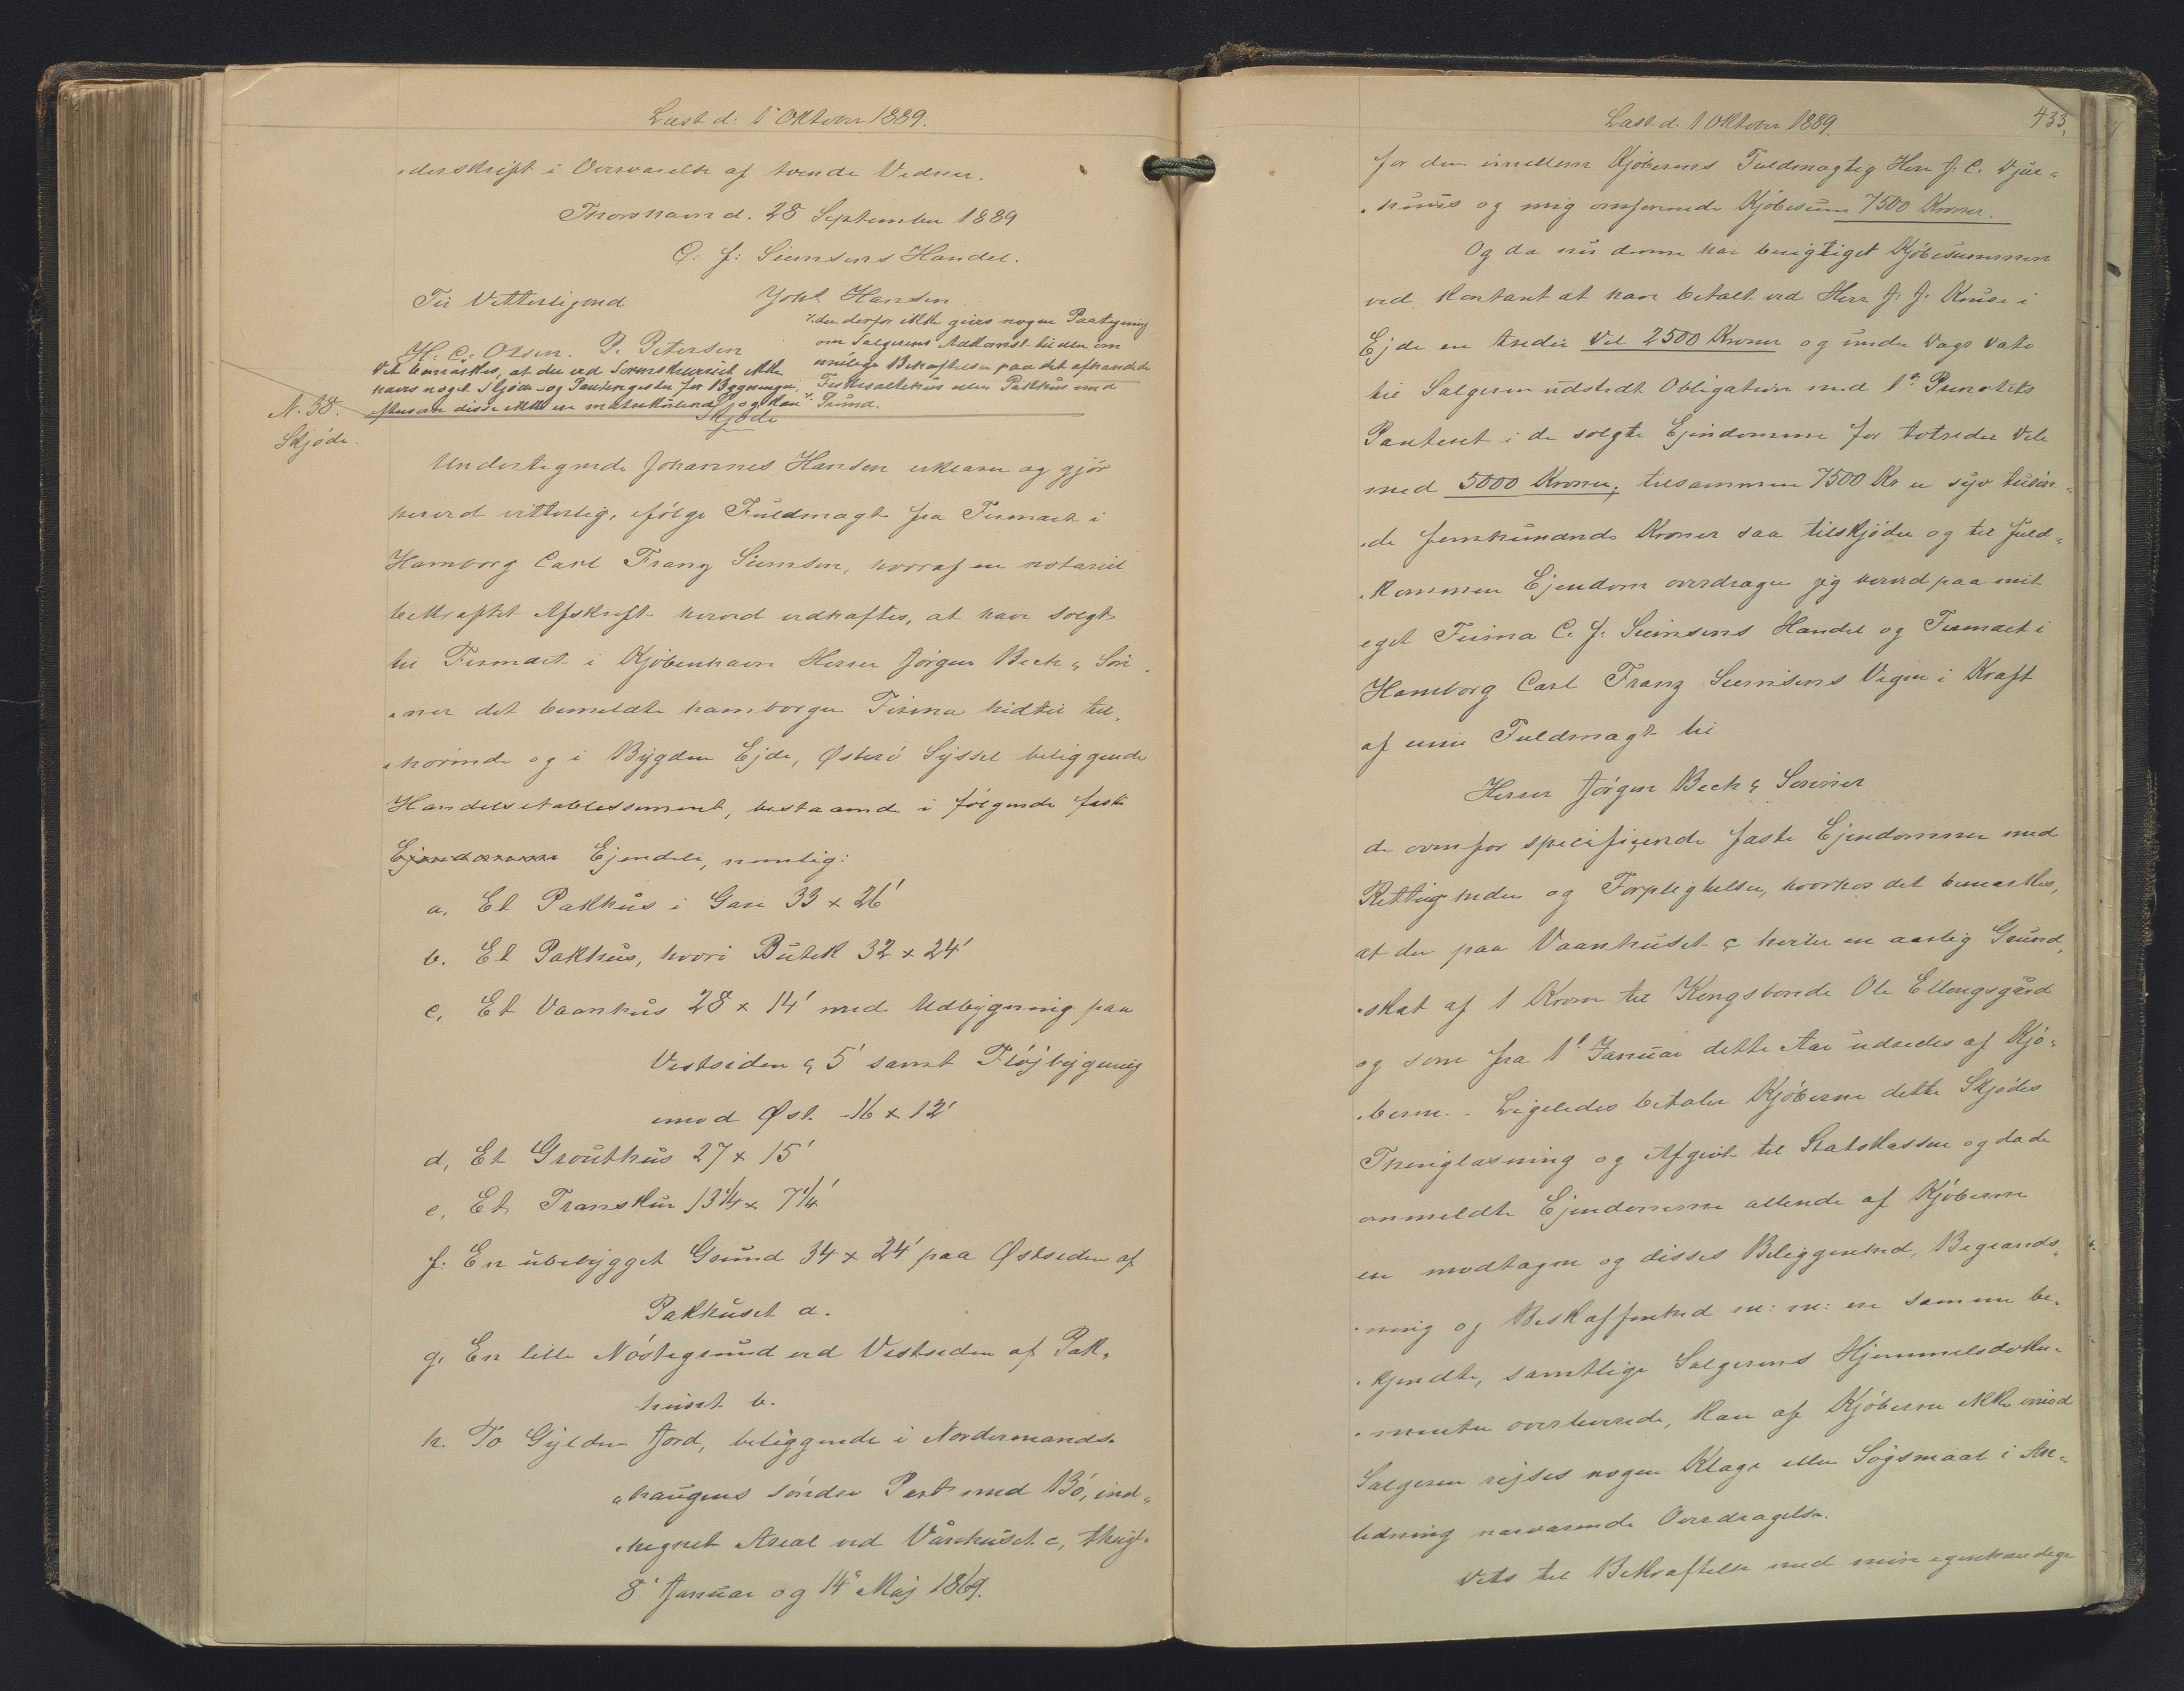 Læst d: 1' Oktober 1889.
„derskrift i Overværelse af tvende Vidner.
Thorshavn d. 28 September 1889
C: F: Siemsens Handel.
Til Vitterlighed
Johs Hansen
H: C: Olsen. P. Petersen
Det bemærkes, at der ved Sorenskriveriet ikke
haves noget Skjøde- og Panteregister for Bygninger,
eftersom disse ikke ere matrikulerede, og kan
der derfor ikke gives nogen Paategning
om Sælgerens Adkomst til eller om
mulige Behæftelser paa det afhændede
Fiskesaltehus eller Pakhus med
Grund.
N. 38.
Skjøde.
Skjøde
Undertegnede Johannes Hansen erklærer og gjør
herved vitterlig, ifølge Fuldmagt fra Firmaet i
Hamborg Carl Franz Siemsen, hvoraf en notarial
bekræftet Afskrift herved vedhæftes, at have solgt
til Firmaet i Kjøbenhavn Herrer Jørgen Bech & Søn-
„ner det bemeldte hamborger Firma hidtil til-
„hørende og i Bygden Ejde, Østerø Syssel beliggende
Handelsetablissement, bestaaende i følgende faste
Ejendomme Ejendele, nemlig:
a. Et Pakhus i Gare 33 x 26'
b. Et Pakhus, hvori Butik 32 x 24'
c. Et Vaanhus 28 x 14' med Udbygning paa
Vestsiden à 5' samt Fløjbygning
imod Øst. 16 x 12'
d, Et Grouthus 27 x 15'
e. Et Transkur 13 1/4 x 7 1/4'
f: En ubebygget Grund 34 x 24' paa Østsiden af
Pakhuset a.
g. En lille Nøstegrund ved Vestsiden af Pak-
huset b.
h. To Gylden Jord, beliggende i Nordermands-
„haugens søndre Part med Bø, ind-
„hegnet Areal ved Vånhuset c,
8' Januar og 14' Maj 1869.
Læst d. 1 Oktober 1889.
433.
for den imellem Kjøberens Fuldmægtig Herr J. C. Djur-
„huus og mig omforenede Kjøbesum 7500 Kroner.
Og da nu denne har berigtiget Kjøbesummen
ved kontant at have betalt ved Herr J: J: Kruse i
Ejde en tredie Del 2500 Kroner og under Dags Dato
til Sælgeren udstedt Obligation med 1' Prioritets
Panteret i de solgte Ejendomme for totredie Dele
med 5000 Kroner; tilsammen 7500 Kr er syv tusin-
„de femhundrede Kroner saa tilskjøder og til fuld-
„kommen Ejendom overdrager jeg herved paa mit
eget Firma C. F: Siemsens Handel og Firmaet i
Hamborg Carl Franz Siemsens Vegne i Kraft
af min Fuldmagt til
Herrer Jørgen Bech & Sønner
de ovenfor specificerede faste Ejendomme med
Rettigheder og Forpligtelser, hvorhos det bemærkes,
at der paa Vaanhuset c hviler en aarlig Grund-
„skat af 1 Krone til Kongsbonde Ole Ellengsgård
og som fra 1' Januar dette Aar udredes af Kjø-
„beren. - Ligeledes betaler Kjøberne dette Skjødes
Thinglæsning og Afgivt til Statskassen og da de
anmeldte Ejendomme allerede af Kjøberne
ere modtagne og disses Beliggenhed, Begrænds-
„ning og Beskaffenhed m: m: ere samme be-
„kjendte, samtlige Sælgerens Hjemmelsdoku-
„menter overleverede, kan af Kjøberne ikke imod
Sælgeren rejses nogen Klage eller Søgsmaal i An-
ledning nærværende Overdragelse.
Dets til Bekræftelse med min egenhændige